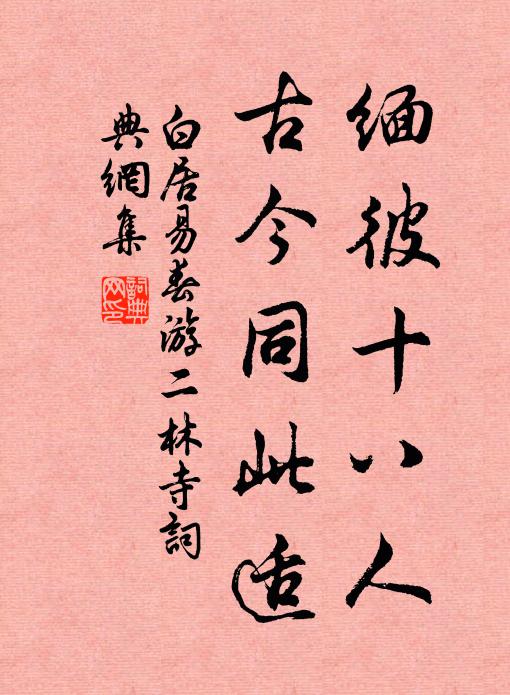 缅彼十八人
古今同此适
白居易春游二林寺詞
典網集
詞典
网印